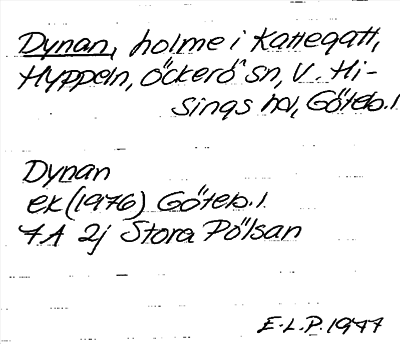 Dynan, holme i Kattegatt,
Hyppeln, Öckerö sn, V. Hi-
sings hd, Göteb.l.
Dynan
ek (1976) Göteb.l.
7A 2j Stora Pölsan
E.L.P. 1977